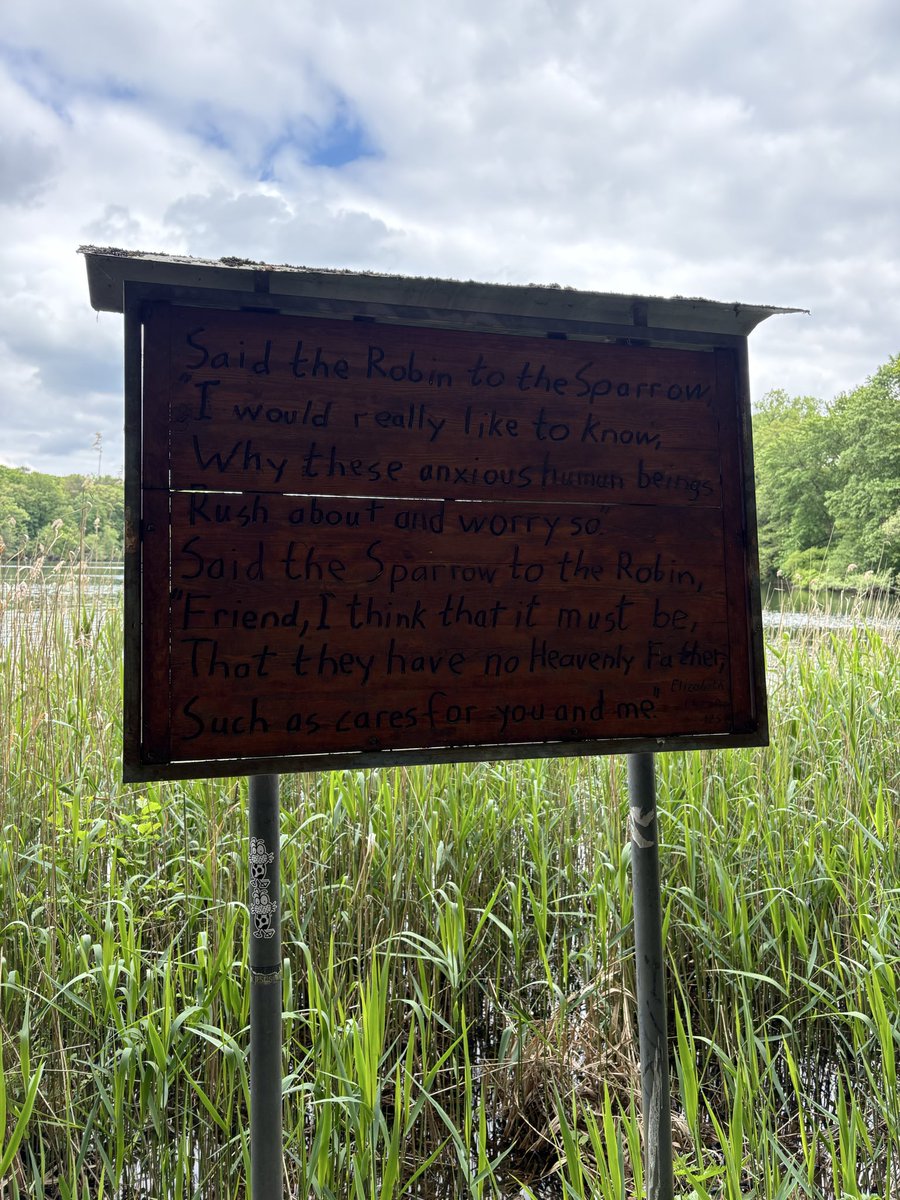 Said the Robin to the Sparrow,
"I would really like to know,
Why these anxious human beings
Rush about and worry so."
Said the Sparrow to the Robin,
"Friend, I think that it must be,
That they have no Heavenly Father,
Such as cares for you and me."
Elizabeth